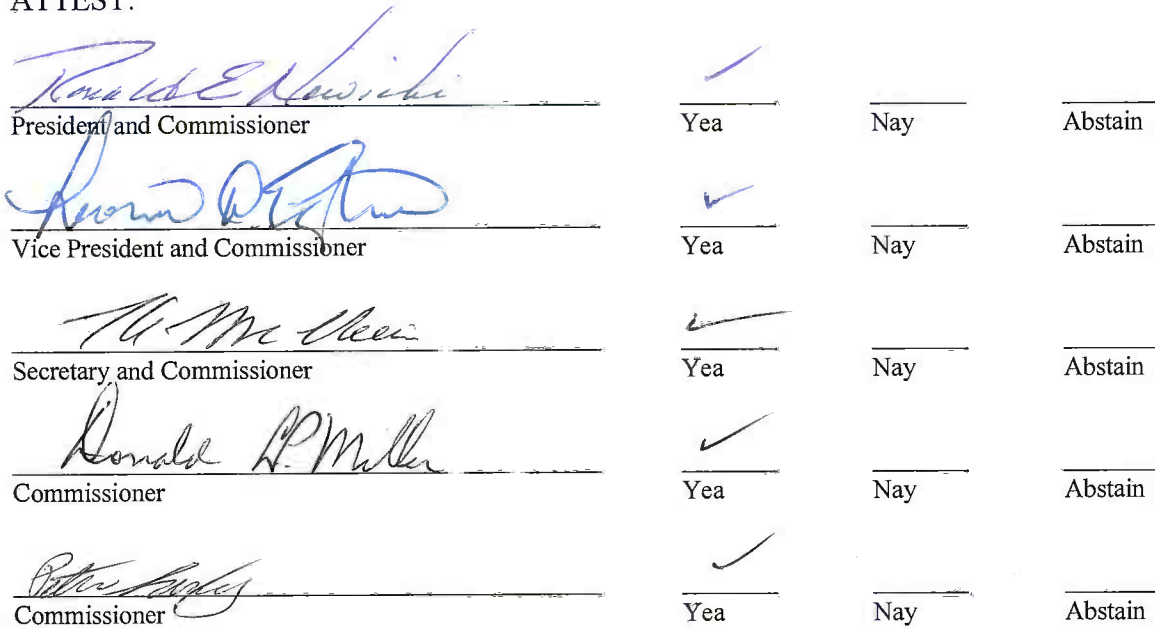 ATTEST:
Ronald E Nowicki ✓
President and Commissioner Yea Nay Abstain
✓
Vice President and Commissioner Yea Nay Abstain
✓
Secretary and Commissioner Yea Nay Abstain
Donald P. Miller ✓
Commissioner Yea Nay Abstain
Peter ✓
Commissioner Yea Nay Abstain